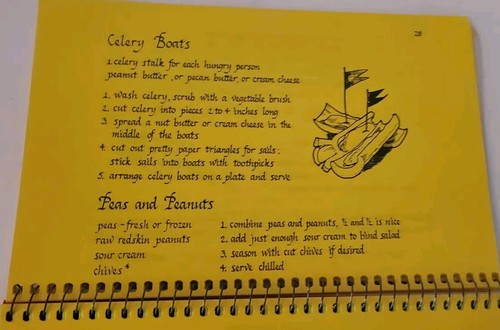 28
Celery Boats
1 celery stalk for each hungry person
peanut butter, or pecan butter, or cream cheese
1. wash celery, scrub with a vegetable brush
2. cut celery into pieces 2 to 4 inches long
3 spread a nut butter or cream cheese in the
middle of the boats
4. cut out pretty paper triangles for sails;
stick sails into boats with toothpicks
5. arrange celery boats on a plate and serve
Peas and Peanuts
peas - fresh or frozen
raw redskin peanuts
sour cream
chives *
1. combine peas and peanuts, ½ and ½ is nice
2. add just enough sour cream to bind salad
3. season with cut chives if desired
4. serve chilled